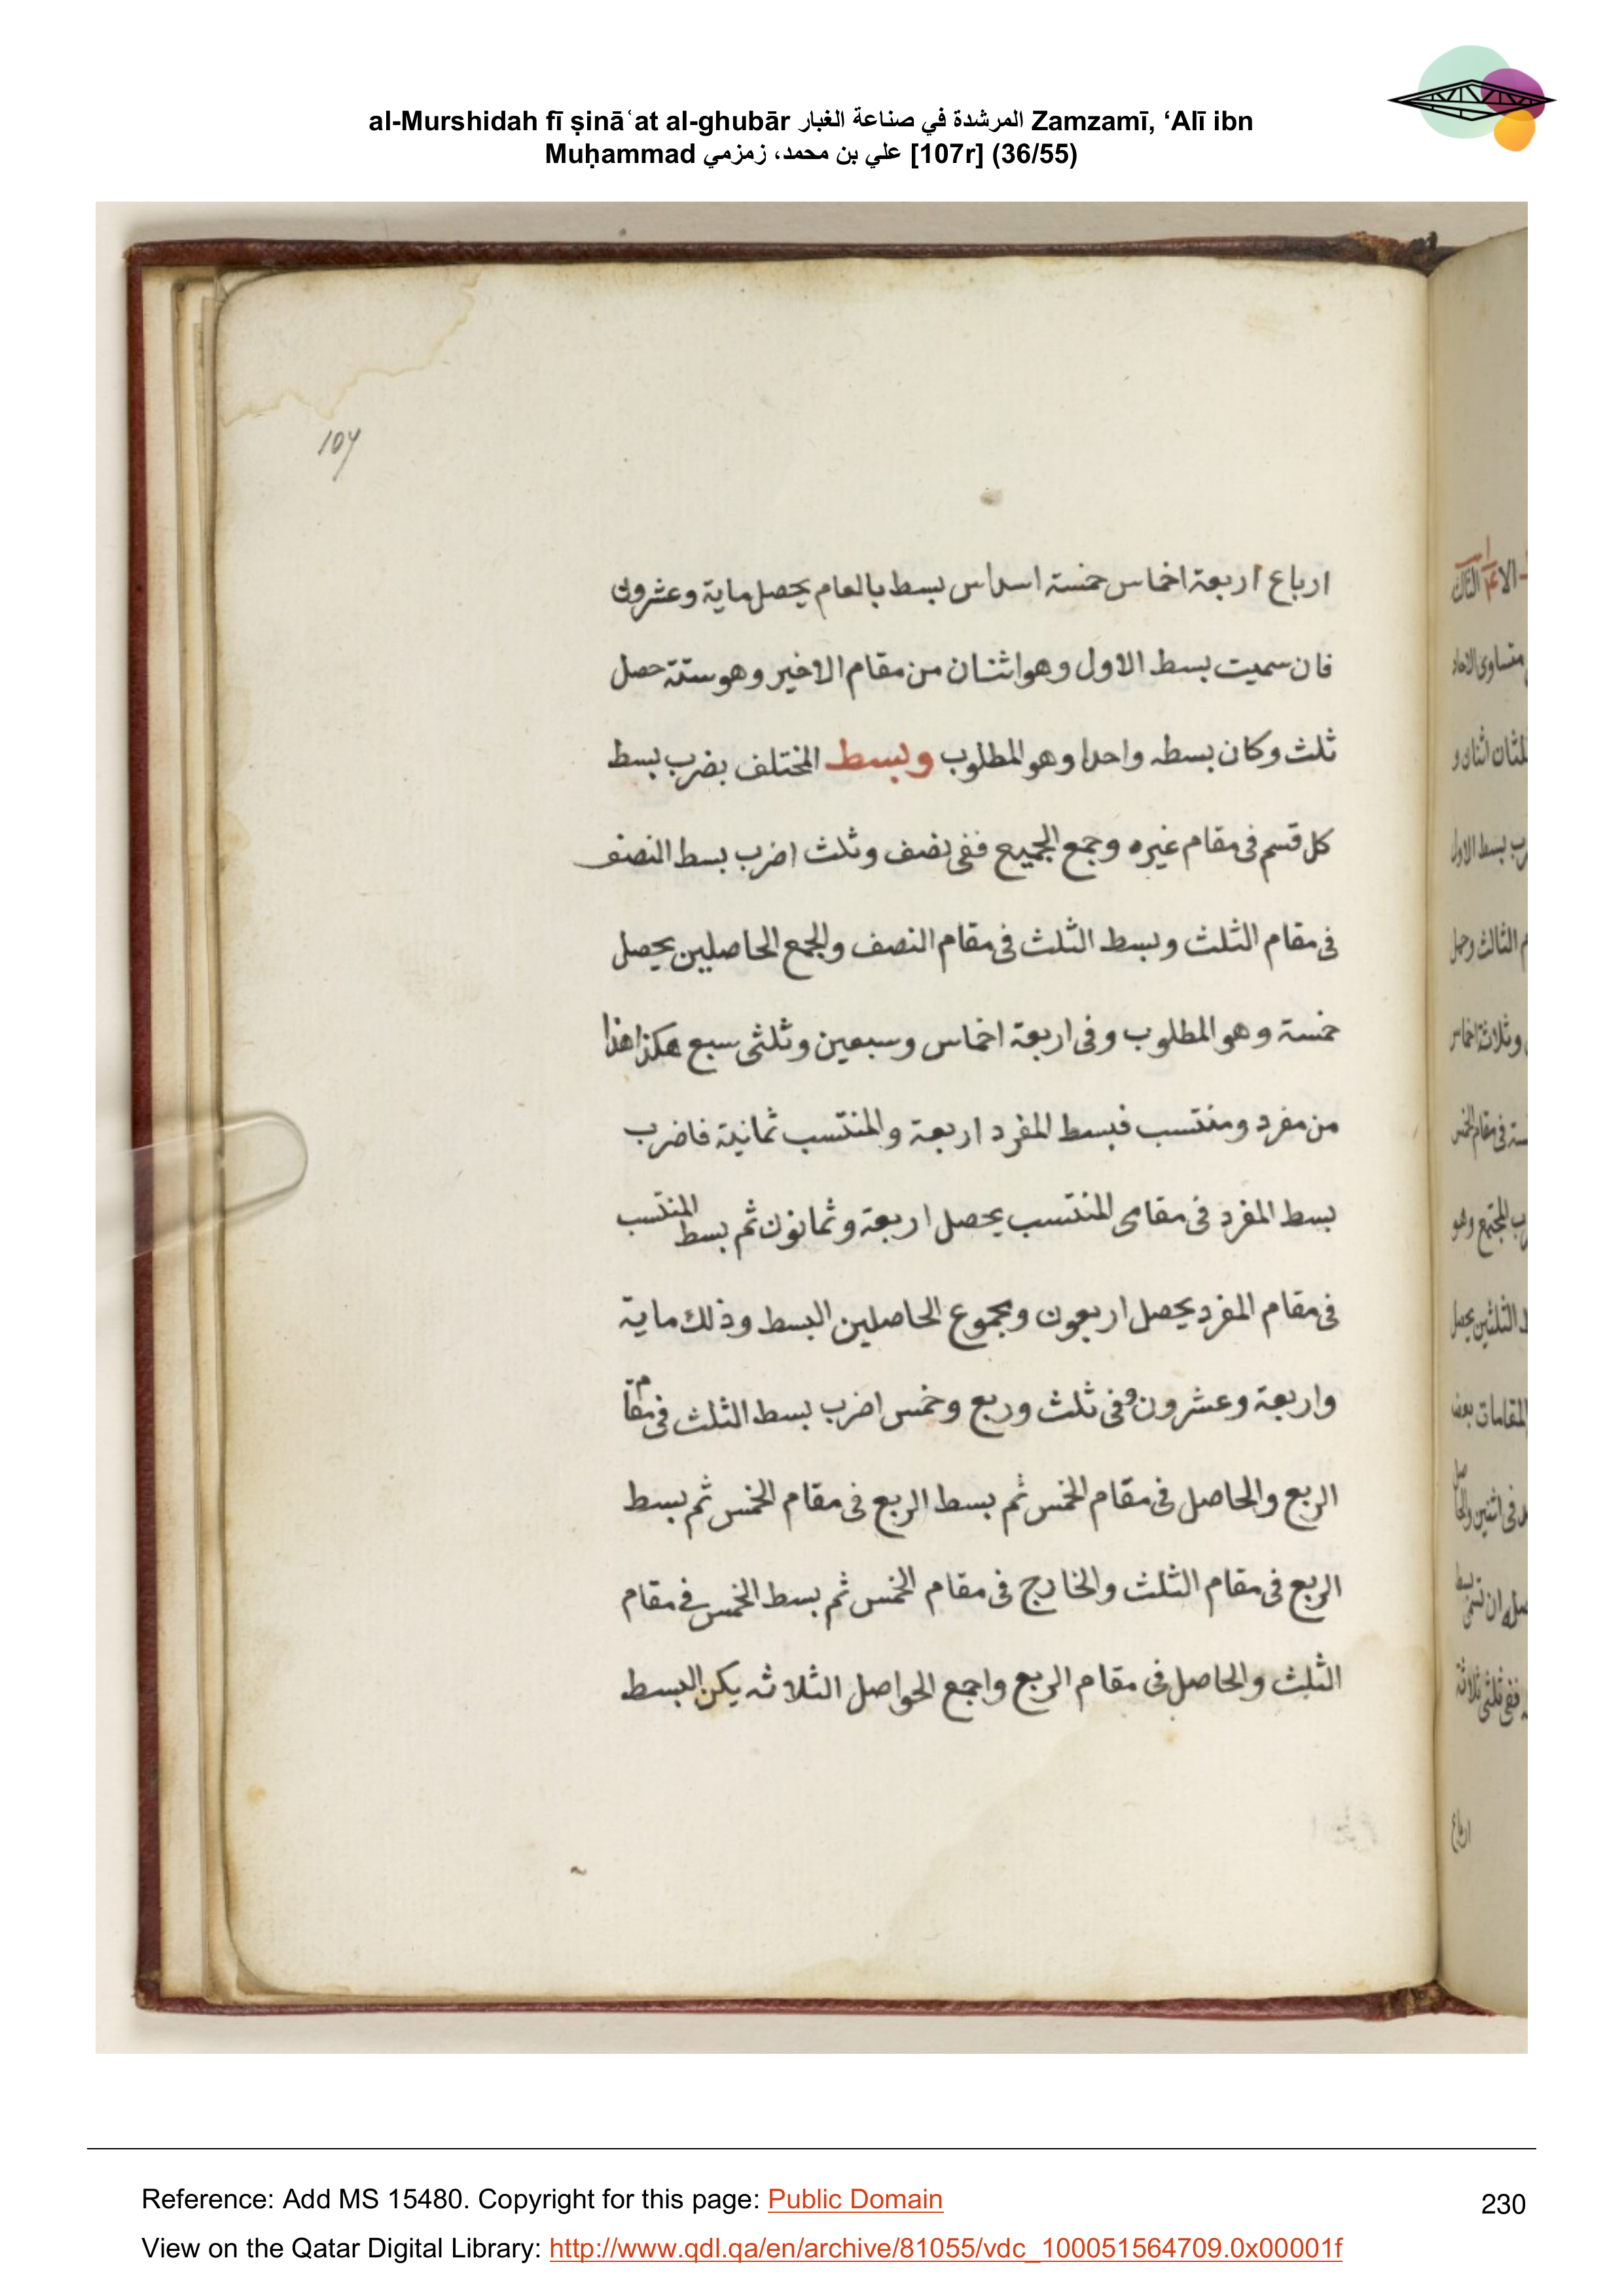 al-Murshidah fī ṣināʿat al-ghubār المرشدة في صناعة الغبار Zamzamī, ‘Alī ibn
Muḥammad علي بن محمد، زمزمي [107r] (36/55)
107
ارباع اربعة اخماس خمسة اسداس بسط بالعام يحصل ماية وعشرون
فان سميت بسط الاول وهو اثنان من مقام الاخير وهو ستة حصل
ثلث وكان بسطه واحدا وهو المطلوب وبسط المختلف بضرب بسط
كل قسم فى مقام غيره وجمع الجميع ففى نصف وثلث اضرب بسط النصف
فى مقام الثلث وبسط الثلث فى مقام النصف والجمع الحاصلين يحصل
خمسة وهو المطلوب وفى اربعة اخماس وسبعين وثلثى سبع هكذا هذا
من مفرد ومنتسب فبسط المفرد اربعة والمنتسب ثمانية فاضرب
بسط المفرد فى مقامى المنتسب يحصل اربعة وثمانون ثم بسط المنتسب
فى مقام المفرد يحصل اربعون ومجموع الحاصلين البسط وذلك ماية
واربعة وعشرون وفى ثلث وربع وخمس اضرب بسط الثلث فى مقام
الربع والحاصل فى مقام الخمس ثم بسط الربع فى مقام الخمس ثم بسط
الربع فى مقام الثلث والخارج فى مقام الخمس ثم بسط الخمس فى مقام
الثلث والحاصل فى مقام الربع واجمع الحواصل الثلاثه يكن البسط
Reference: Add MS 15480. Copyright for this page: Public Domain
230
View on the Qatar Digital Library: http://www.qdl.qa/en/archive/81055/vdc_100051564709.0x00001f